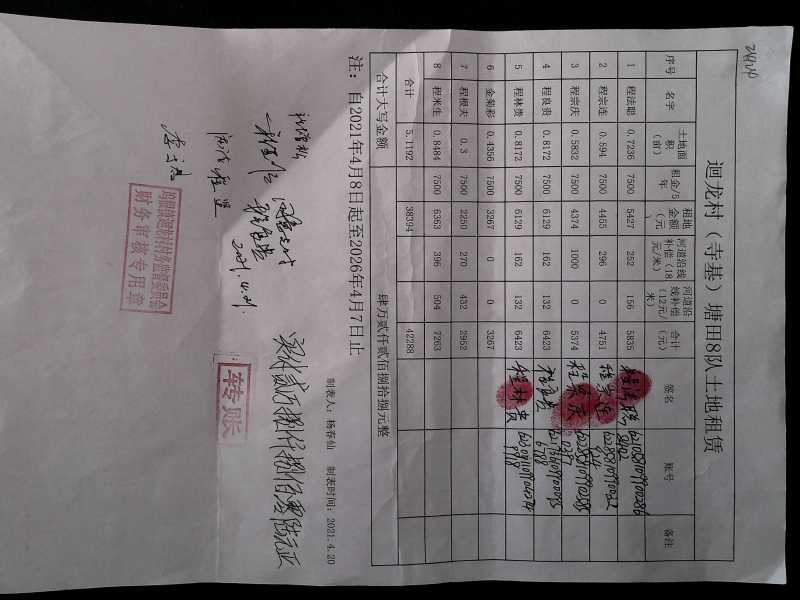 迴龙村（寺基）塘田8队土地租赁
序号 名字 土地面积（亩） 租金/5年 租地金额（元） 河道沿线补偿（18元/米） 河道沿线补偿（12元/米） 合计（元） 签名 账号 备注
1 程法聪 0.7236 7500 5427 252 156 5835 程法聪
2 程宗连 0.594 7500 4455 296 0 4751 程宗连
3 程宗庆 0.5832 7500 4374 1000 0 5374 程宗庆
4 程良贵 0.8172 7500 6129 162 132 6423 程良贵
5 程林贵 0.8172 7500 6129 162 132 6423 程林贵
6 金菊彩 0.4356 7500 3267 0 0 3267
7 程根夫 0.3 7500 2250 270 432 2952
8 程米生 0.8484 7500 6363 396 504 7263
合计 5.1192 38394 42288
合计大写金额 肆万贰仟贰佰捌拾捌元整
注：自2021年4月8日起至2026年4月7日止
制表人：杨春仙 制表时间：2021.4.20
实付贰万捌仟捌佰零陆元正
转账
2021.4.21.
财务审核专用章